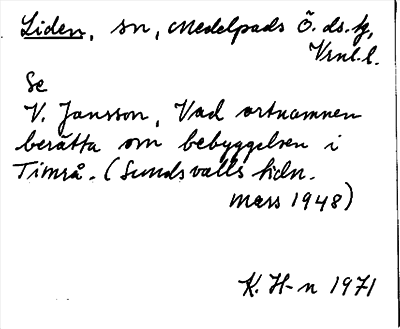 Liden, sn, Medelpads Ö. ds. tg,
Vrnl.l.
Se
V. Jansson, Vad ortnamnen
berätta om bebyggelsen i
Timrå. (Sundsvalls tidn.
mars 1948)
K. H-n 1971